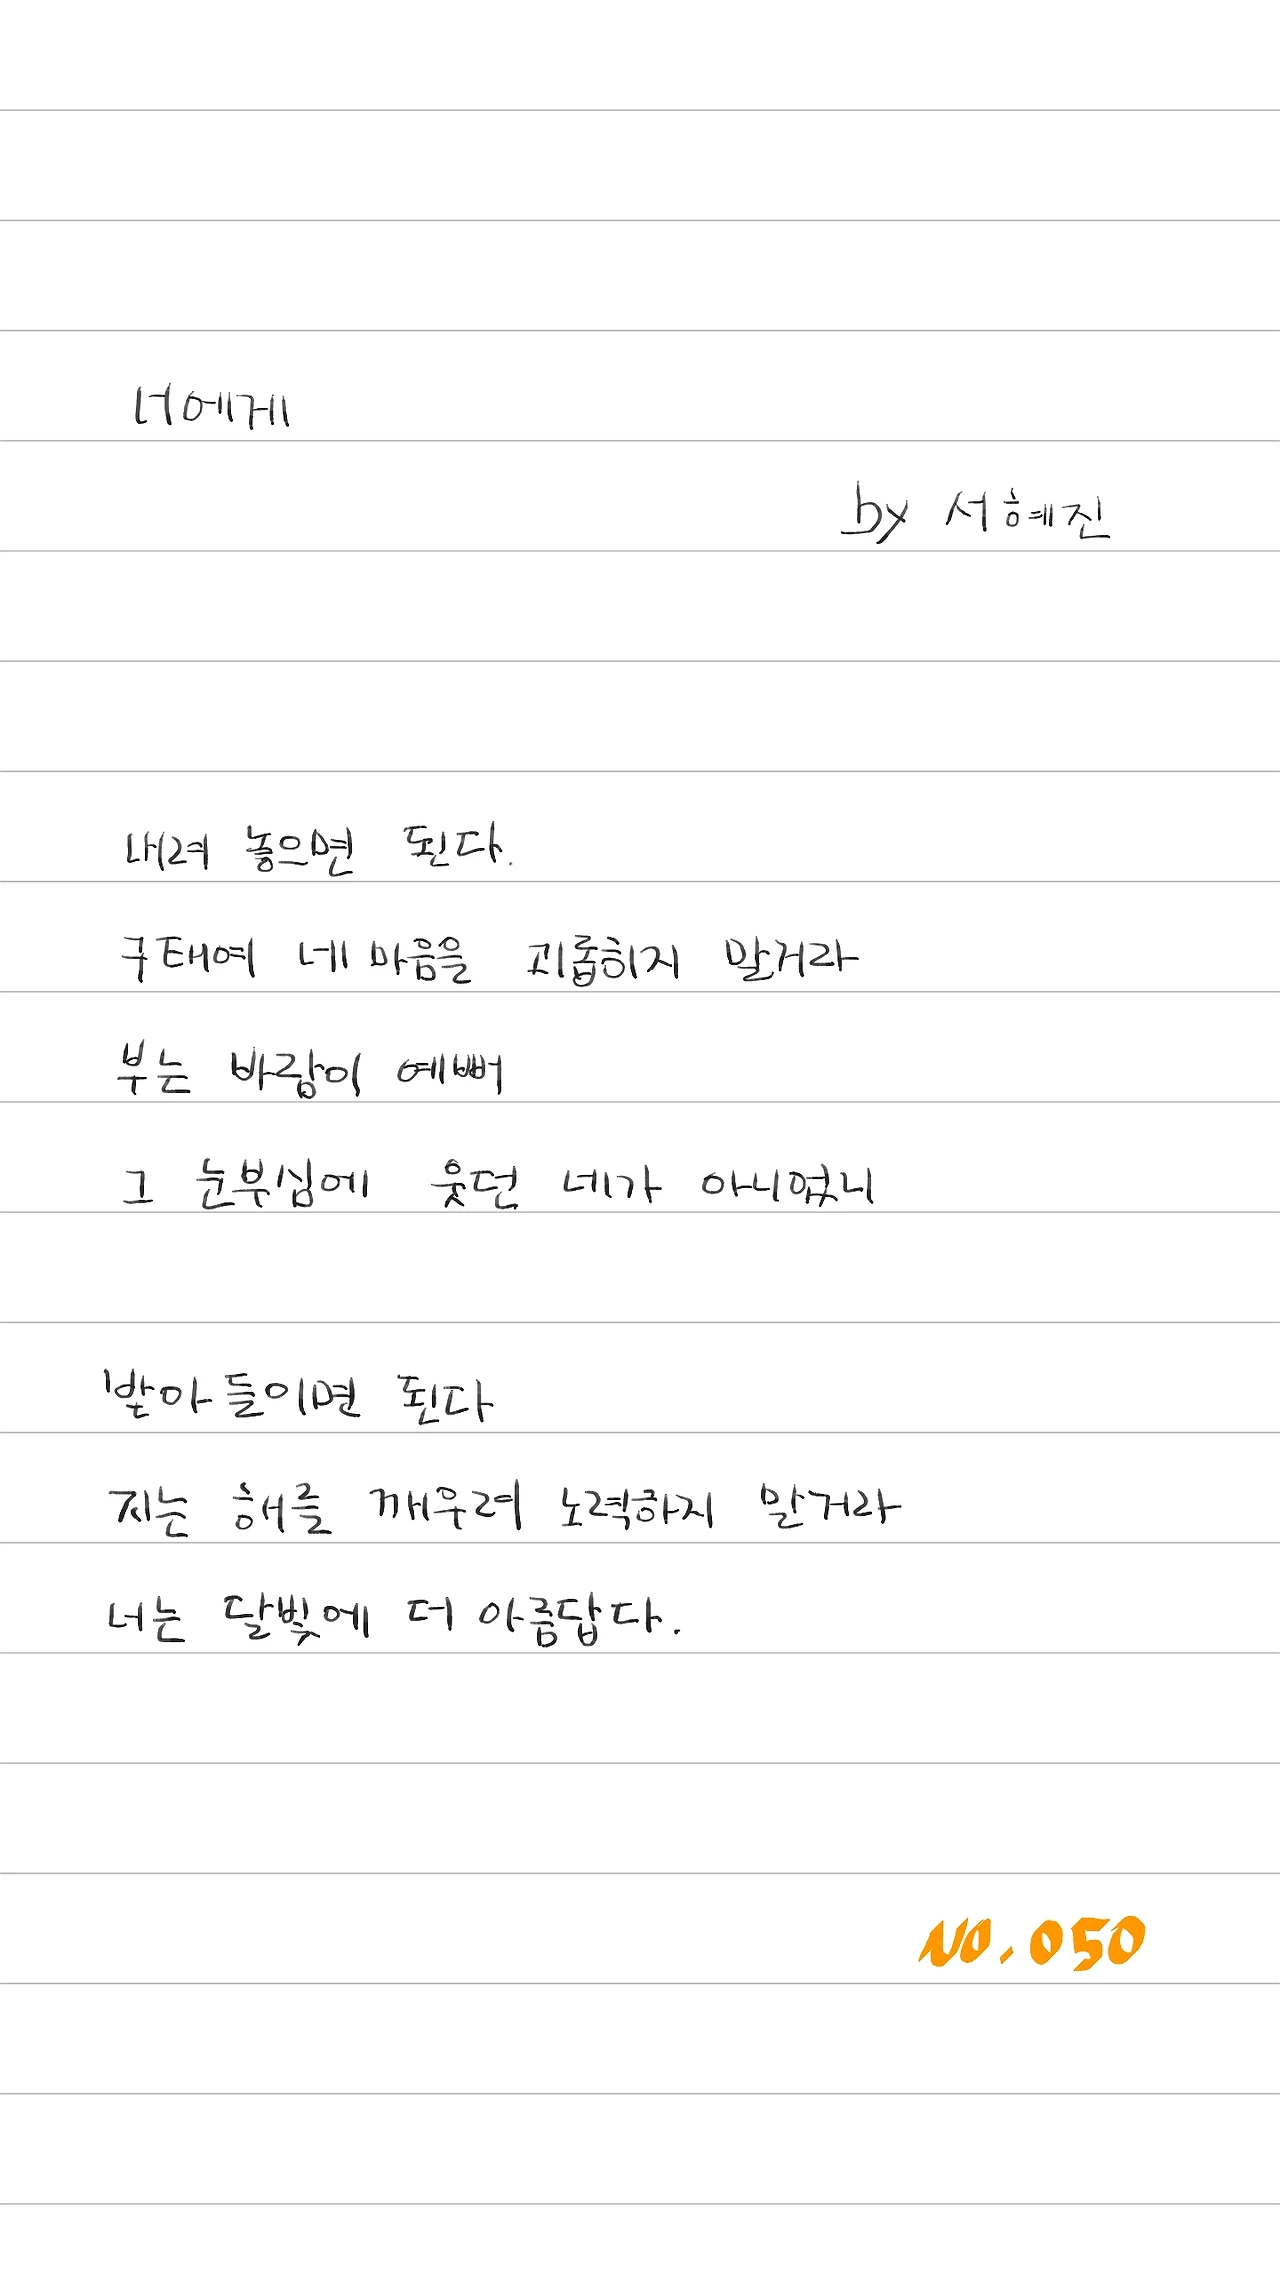 너에게
by 서혜진
내려 놓으면 된다.
구태여 네 마음을 괴롭히지 말거라
부는 바람이 예뻐
그 눈부심에 웃던 네가 아니였니
받아들이면 된다
지는 해를 깨우려 노력하지 말거라
너는 달빛에 더 아름답다.
NO.050